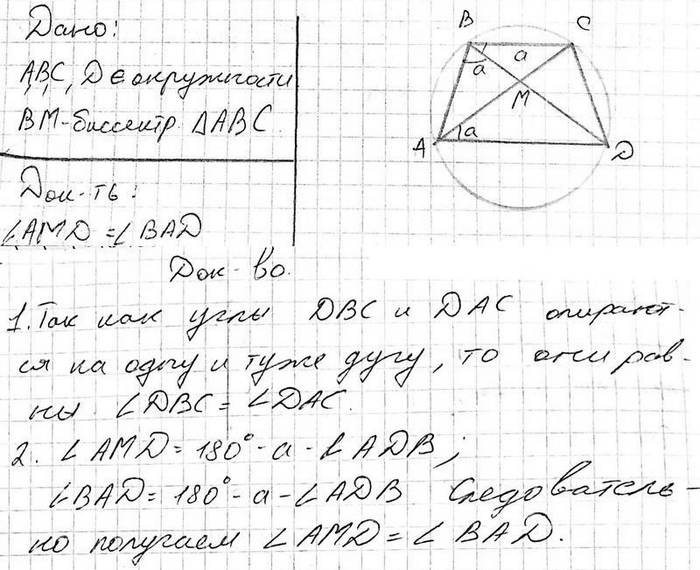 Дано:
A,B,C,D ∈ окружности
BM-биссектр. ΔABC.
Док-ть:
∠AMD = ∠BAD
B
C
a
a
M
A
a
D
Док-во.
1. Так как углы DBC и DAC опирают-
ся на одну и туже дугу, то они рав-
ны. ∠DBC = ∠DAC.
2. ∠AMD = 180° - a - ∠ADB;
∠BAD = 180° - a - ∠ADB Следователь-
но получаем ∠AMD = ∠BAD.